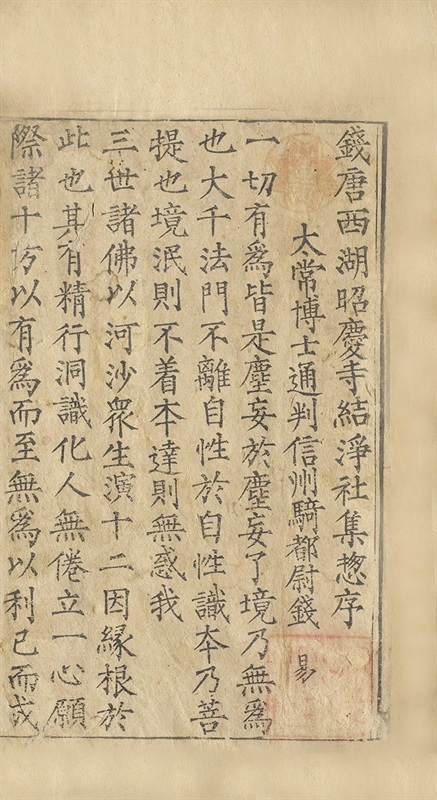 錢唐西湖昭慶寺結淨社集惣序
太常博士通判信州騎都尉錢易
一切有爲皆是塵妄於塵妄了境乃無爲
也大千法門不離自性於自性識本乃菩
提也境泯則不着本達則無惑我
三世諸佛以河沙衆生演十二因緣根於
此也其有精行洞識化人無倦立一心願
際諸十方以有爲而至無爲以利己而成